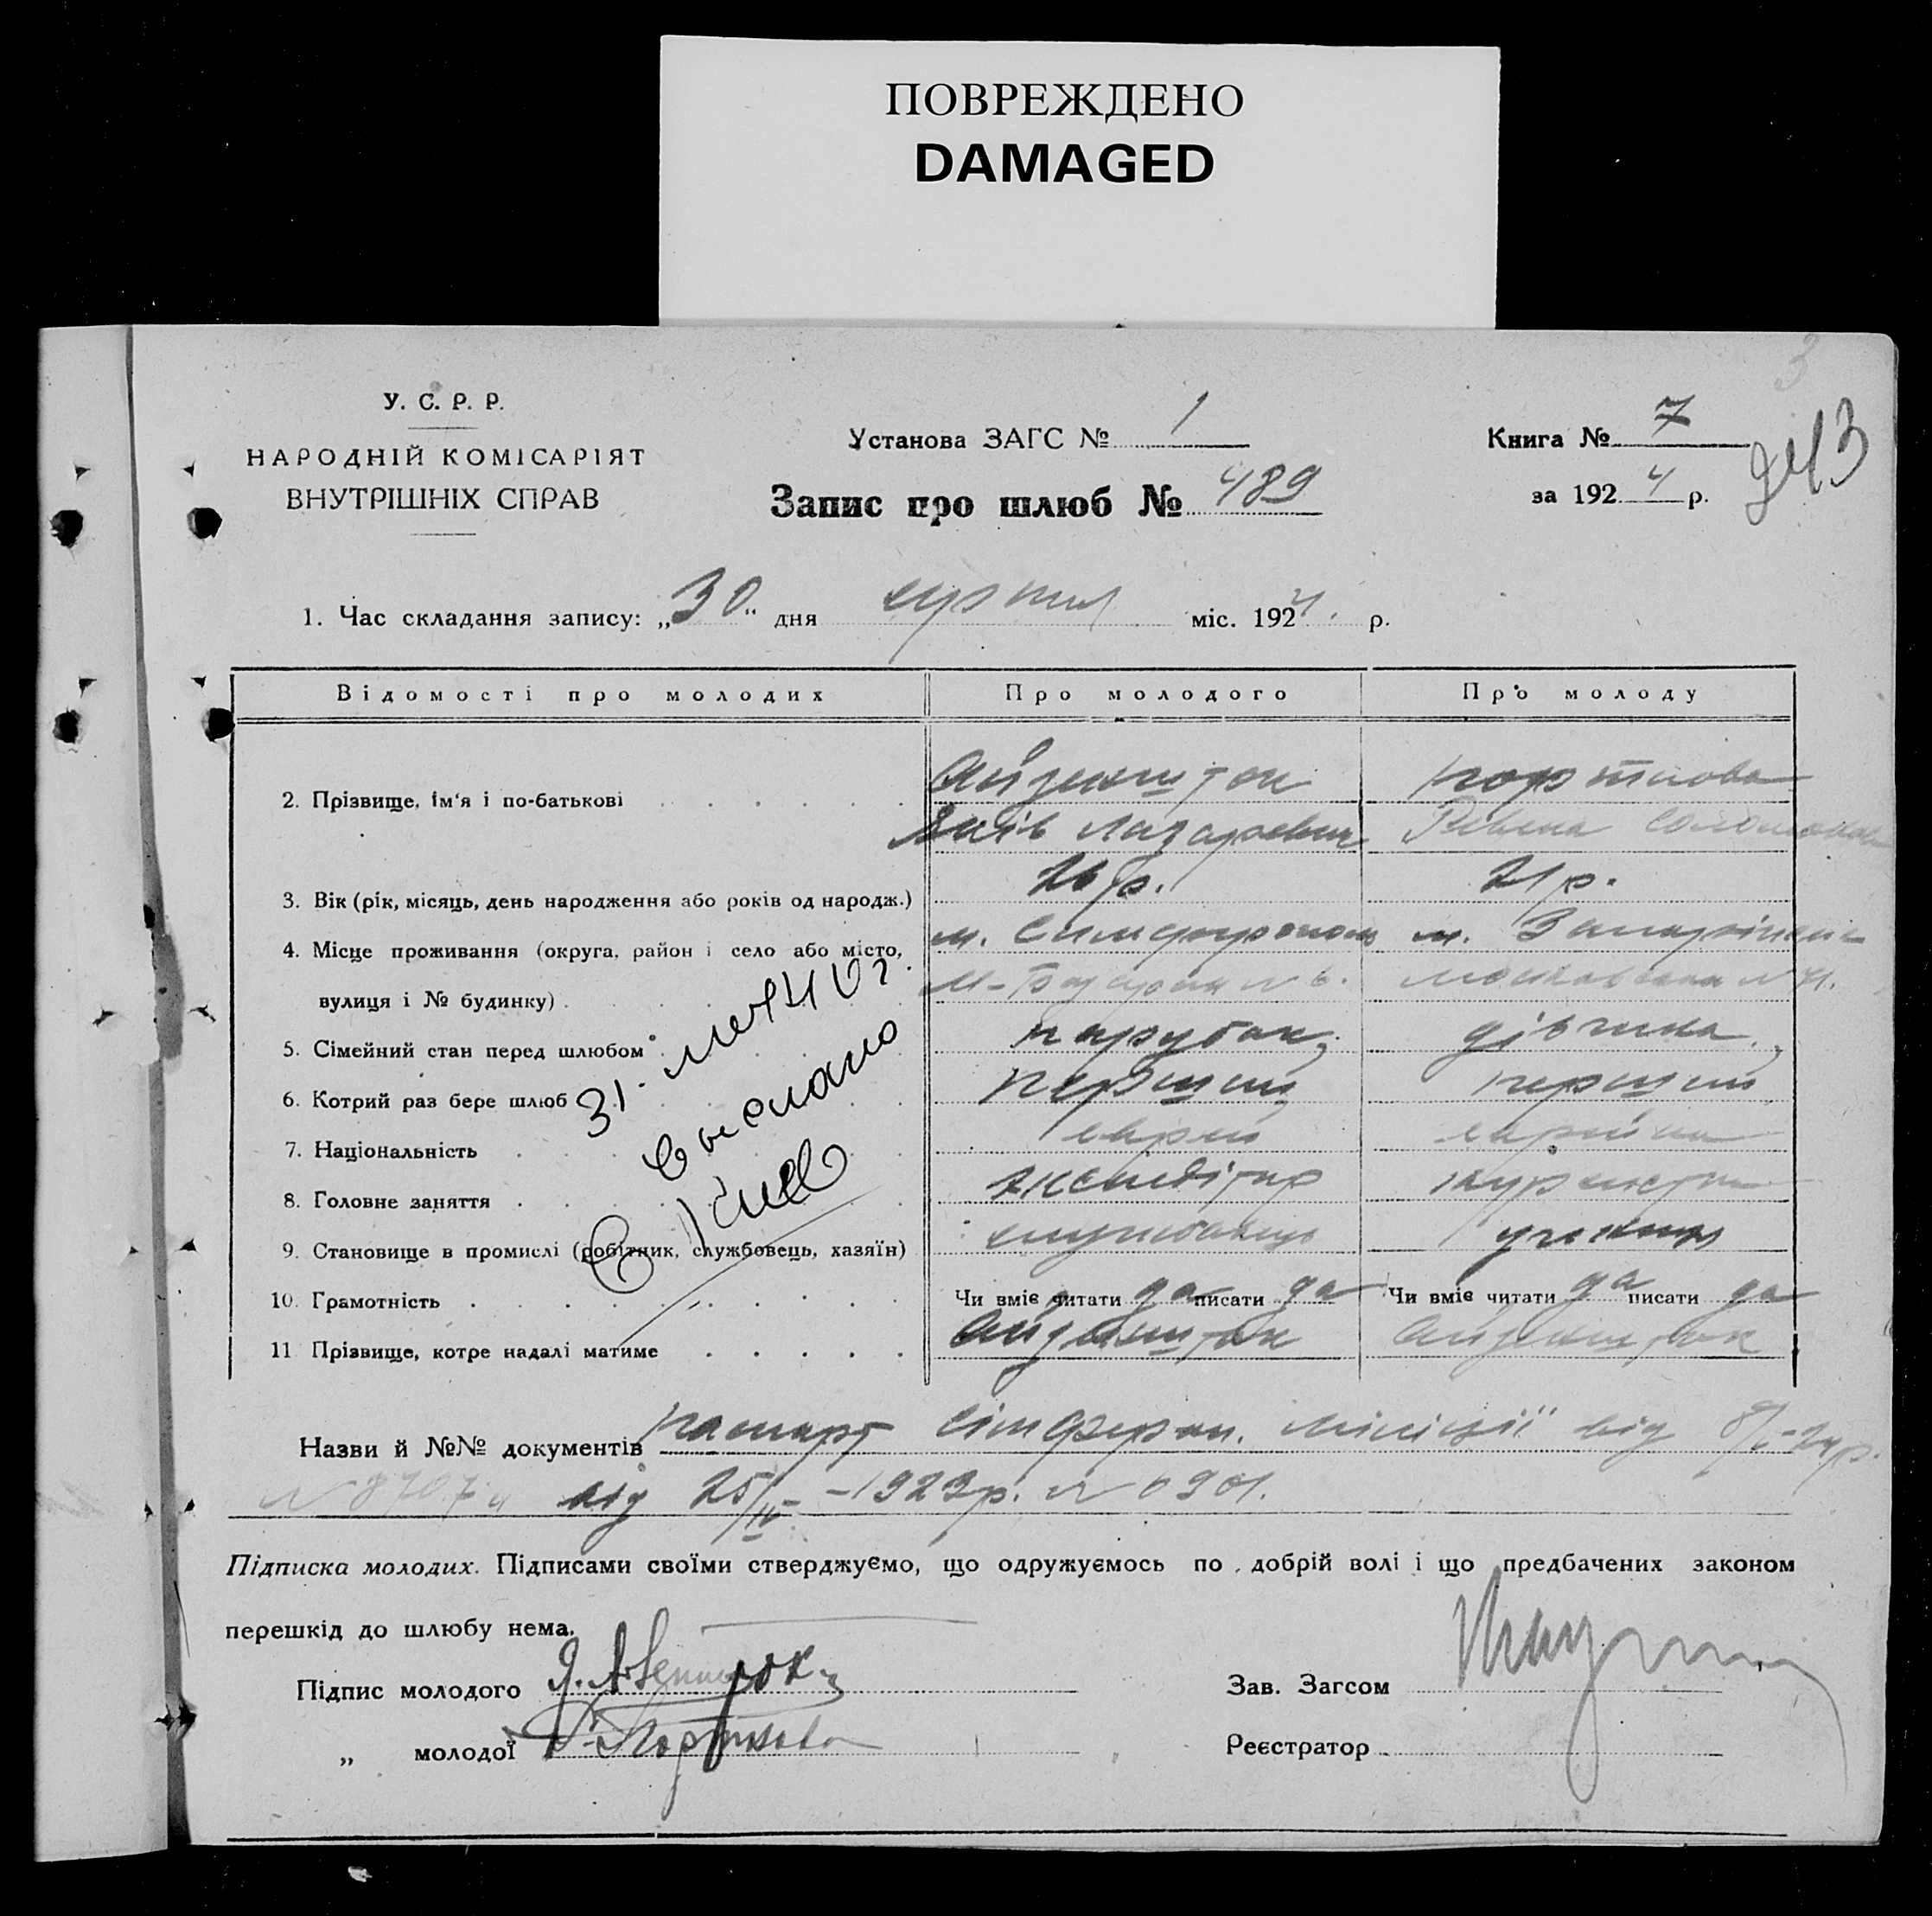 ПОВРЕЖДЕНО
DAMAGED
3
У. С. Р. Р.
НАРОДНІЙ КОМІСАРІЯТ
ВНУТРІШНІХ СПРАВ
Установа ЗАГС № 1
Запис про шлюб № 489
Книга № 7
за 192 4 р.
243
1. Час складання запису: „30" дня серпня міс. 1924. р.
Відомості про молодих Про молодого Про молоду
2. Прізвище, ім'я і по-батькові Айзеншток Портнова
Яків Лазаревич Ревека
3. Вік (рік, місяць, день народження або років од народж.) 26 р. 21 р.
4. Місце проживання (округа, район і село або місто, м. Симферополь м. Запоріжжя
вулиця і № будинку) М-Базарна № 6. Московська №
5. Сімейний стан перед шлюбом парубок дівчина
6. Котрий раз бере шлюб перший перший
7. Національність еврей еврейка
8. Головне заняття експедітор курсистка
9. Становище в промислі (робітник, службовець, хазяїн) службовець учениця
10. Грамотність Чи вміє читати да писати да Чи вміє читати да писати да
11. Прізвище, котре надалі матиме Айзеншток Айзеншток
31.
Выслано
Киев
Назви й №№ документів паспорт Сімфероп. міліції від
від 25/IV - 1923р. №
Підписка молодих. Підписами своїми стверджуємо, що одружуємось по добрій волі і що предбачених законом
перешкід до шлюбу нема.
Підпис молодого Я. Айзеншток
Зав. Загсом
„ молодої Р. Портнова
Реєстратор